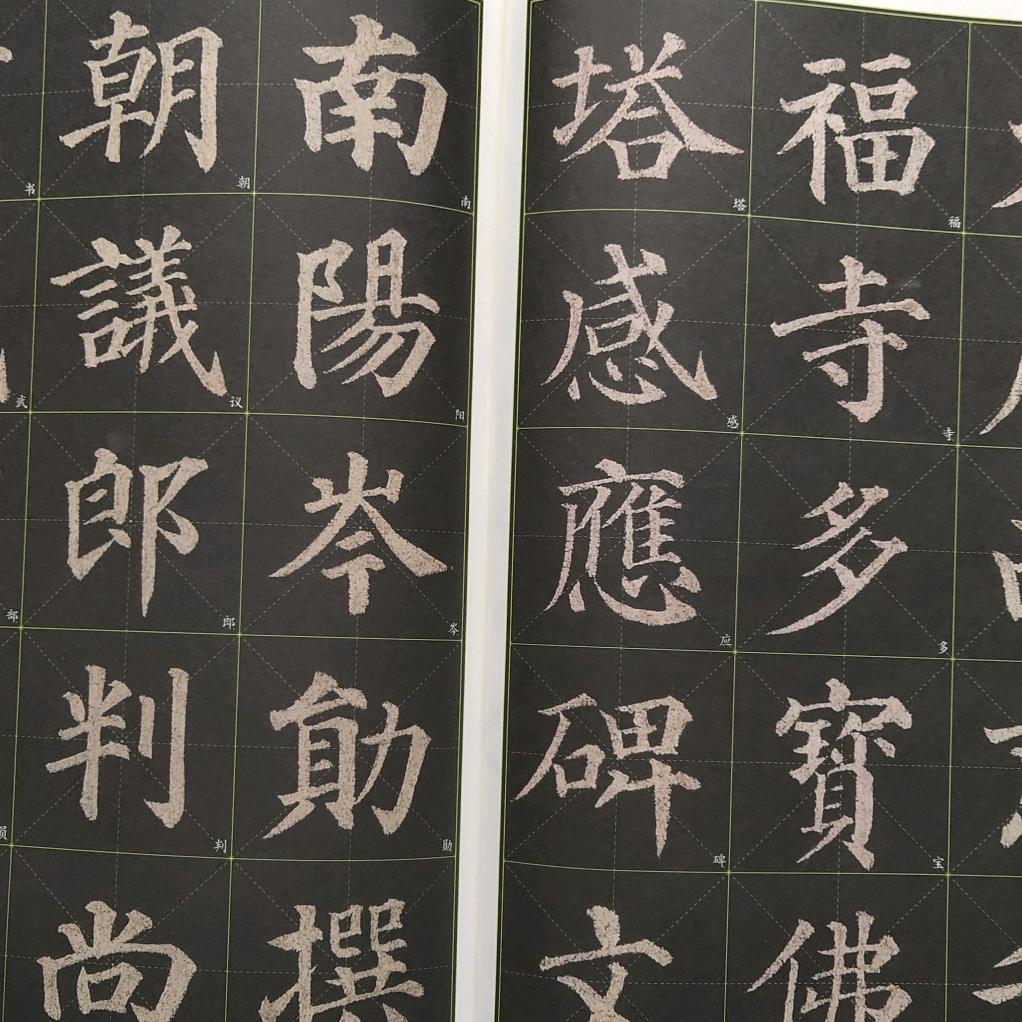 福寺多寶佛
福寺多宝
塔感應碑文
塔感应碑
南陽岑勛撰
南阳岑勋
朝議郎判尚
朝议郎判
书武部